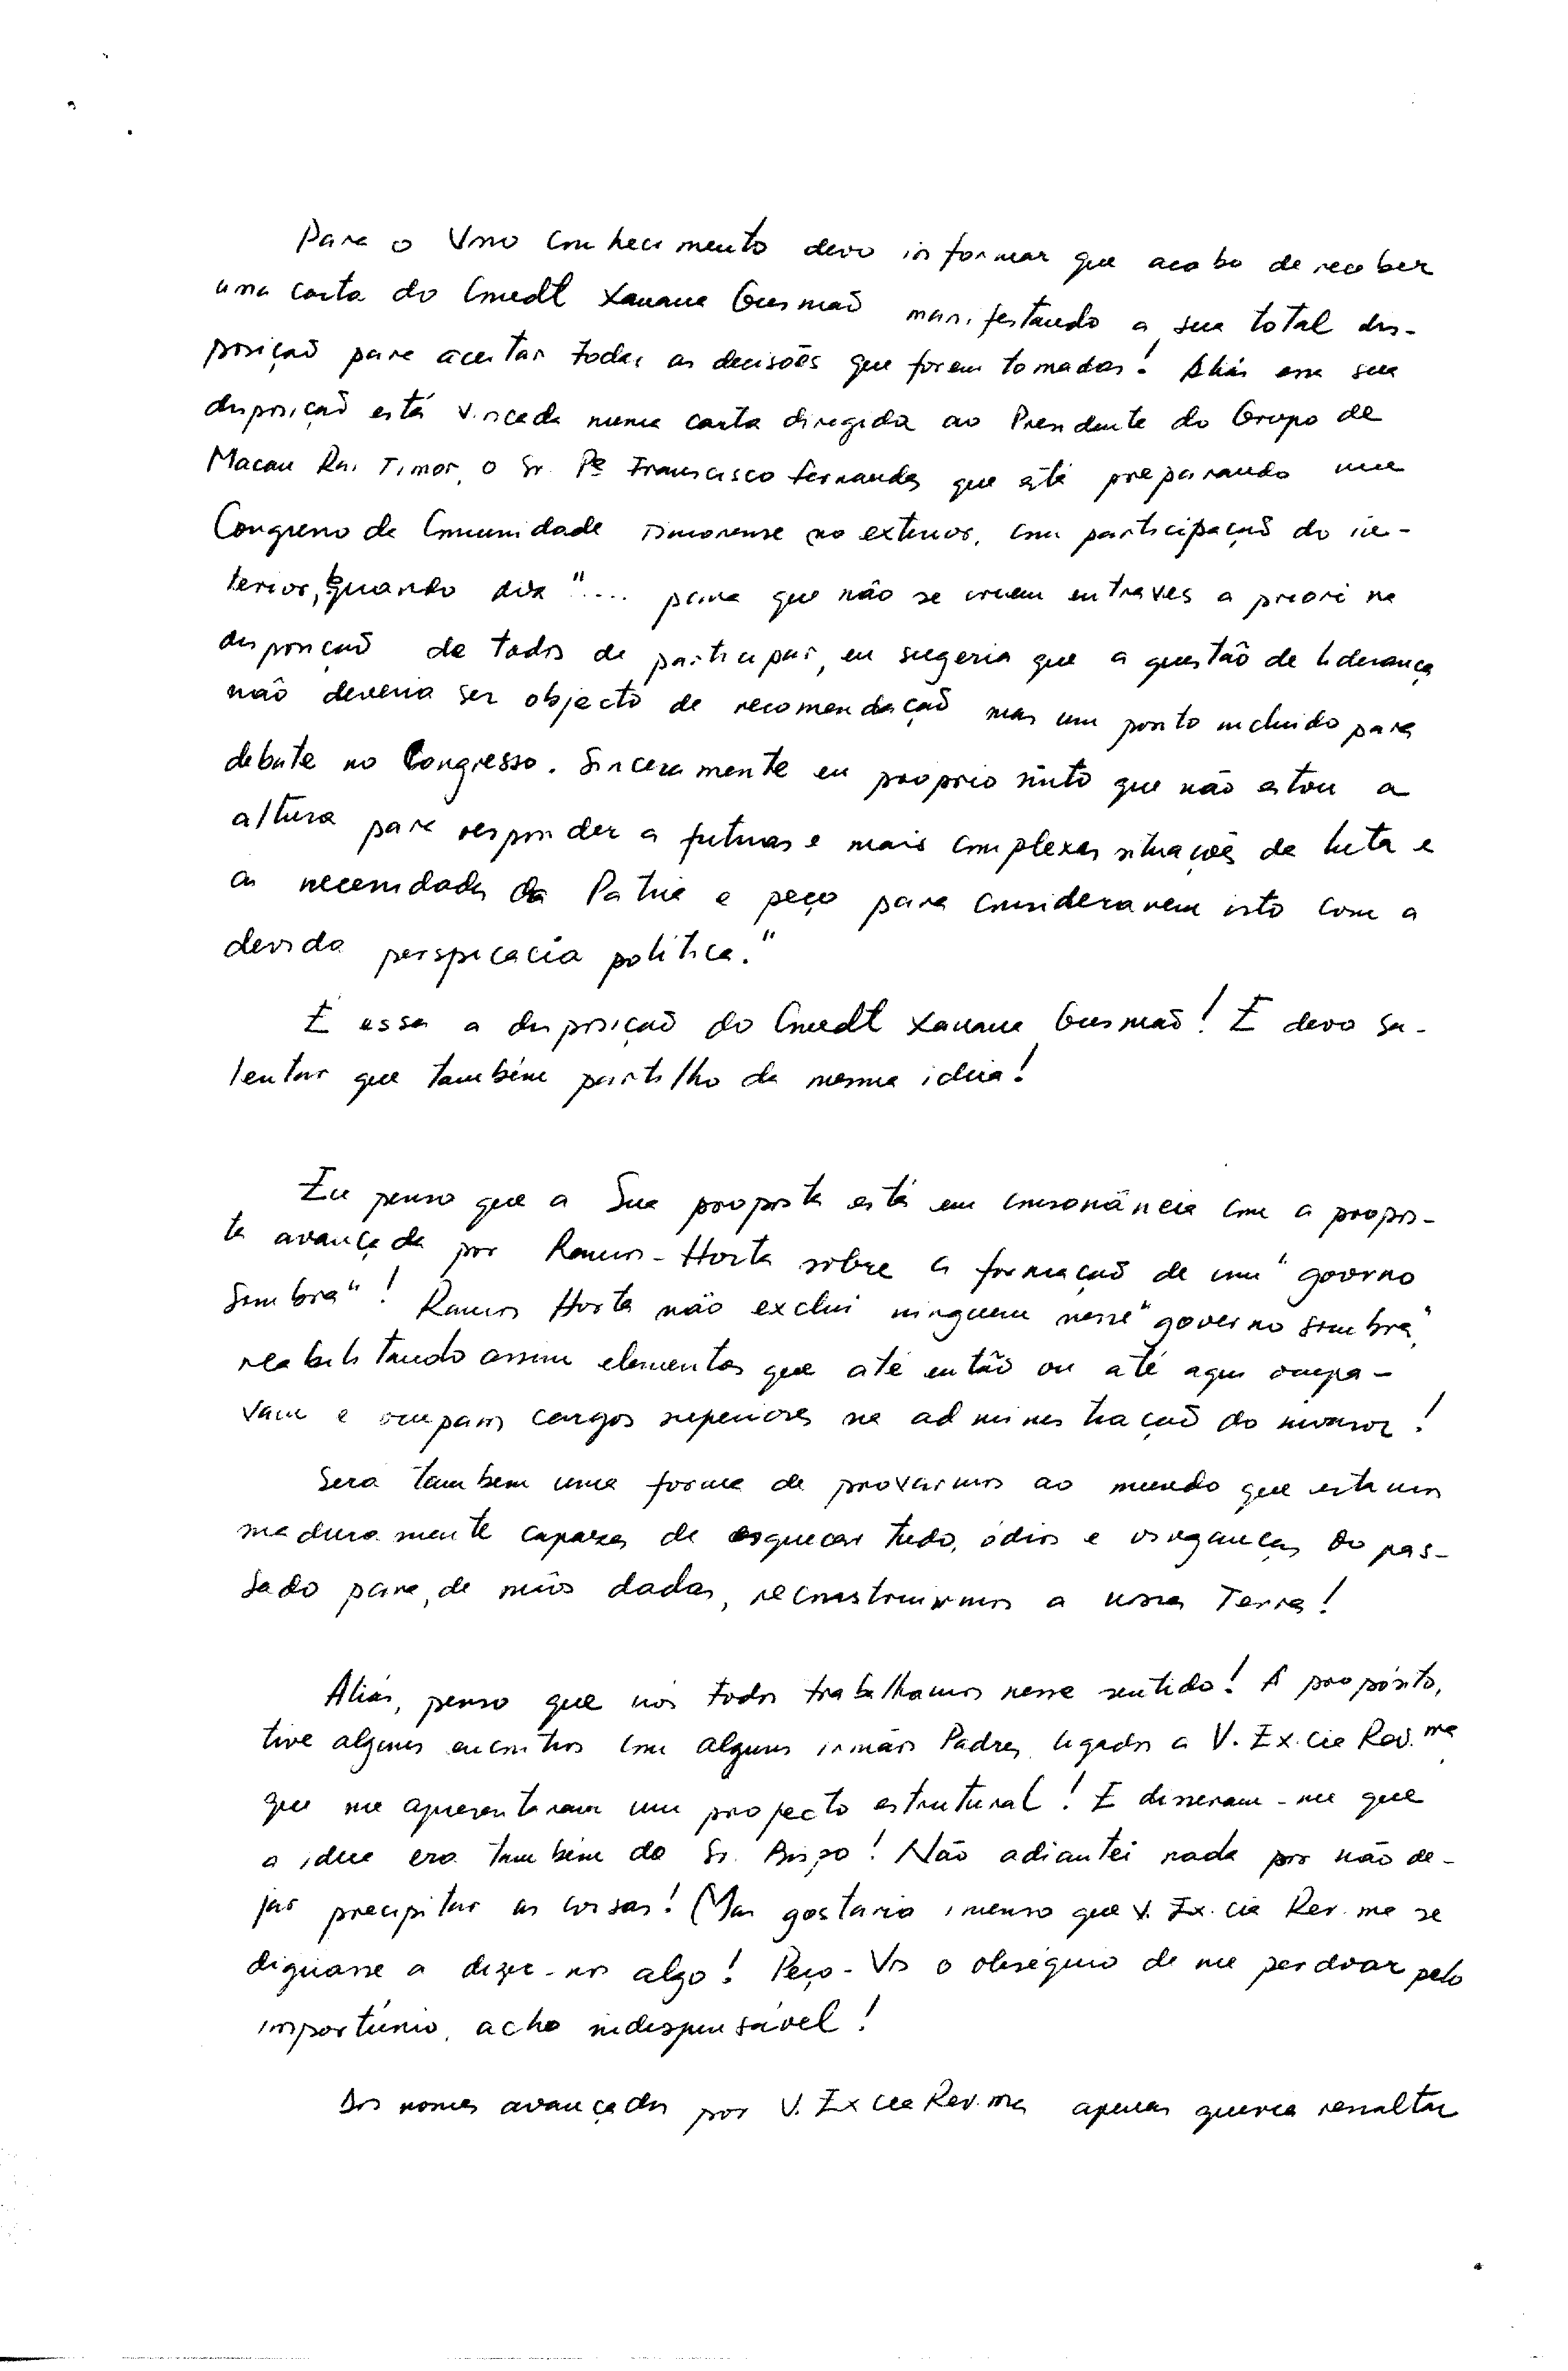 Para o Vosso conhecimento devo informar que acabo de receber
uma carta do Cmdt Xanana Gusmão manifestando a sua total dis-
posição para aceitar todas as decisões que forem tomadas! Aliás essa sua
disposição está vincada numa carta dirigida ao Presidente do Grupo de
Macau Rai Timor, o Sr. Pe Francisco Fernandes que está preparando um
Congresso da Comunidade Timorense no exterior, com participação do in-
terior, quando diz ".... para que não se criem entraves a priori na
disposição de todos de participar, eu sugeria que a questão de liderança
não deveria ser objecto de recomendação mas um ponto incluido para
debate no Congresso. Sinceramente eu proprio sinto que não estou a
altura para responder a futuras e mais complexas situações da luta e
as necessidades da Patria e peço para considerarem isto com a
devida perspicacia politica."
É essa a disposição do Cmdt Xanana Gusmão! E devo sa-
lentar que também partilho da mesma ideia!
Eu penso que a Sua proposta está em consonância com a propos-
ta avançada por Ramos-Horta sobre a formação de um "governo
sombra"! Ramos Horta não exclui ninguem nesse "governo sombra",
reabilitando assim elementos que até então ou até aqui ocupa-
vam e ocupam cargos superiores na administração do invasor!
Sera tambem uma forma de provarmos ao mundo que estamos
maduramente capazes de esquecer tudo, ódios e vinganças do pas-
sado para, de mãos dadas, reconstruirmos a nossa Terra!
Aliás, penso que nós todos trabalhamos nesse sentido! A propósito,
tive alguns encontros com alguns irmãos Padres ligados a V. Ex.cia Rev.ma
que me apresentaram um projecto estrutural! E disseram-me que
a ideia era também do Sr. Bispo! Não adiantei nada por não de-
jar precipitar as coisas! Mas gostaria imenso que V. Ex.cia Rev.ma se
dignasse a dizer-nos algo! Peço-Vos o obséquio de me perdoar pelo
importúnio, acho indispensável!
Dos nomes avançados por V. Excia Rev.ma apenas queria ressaltar